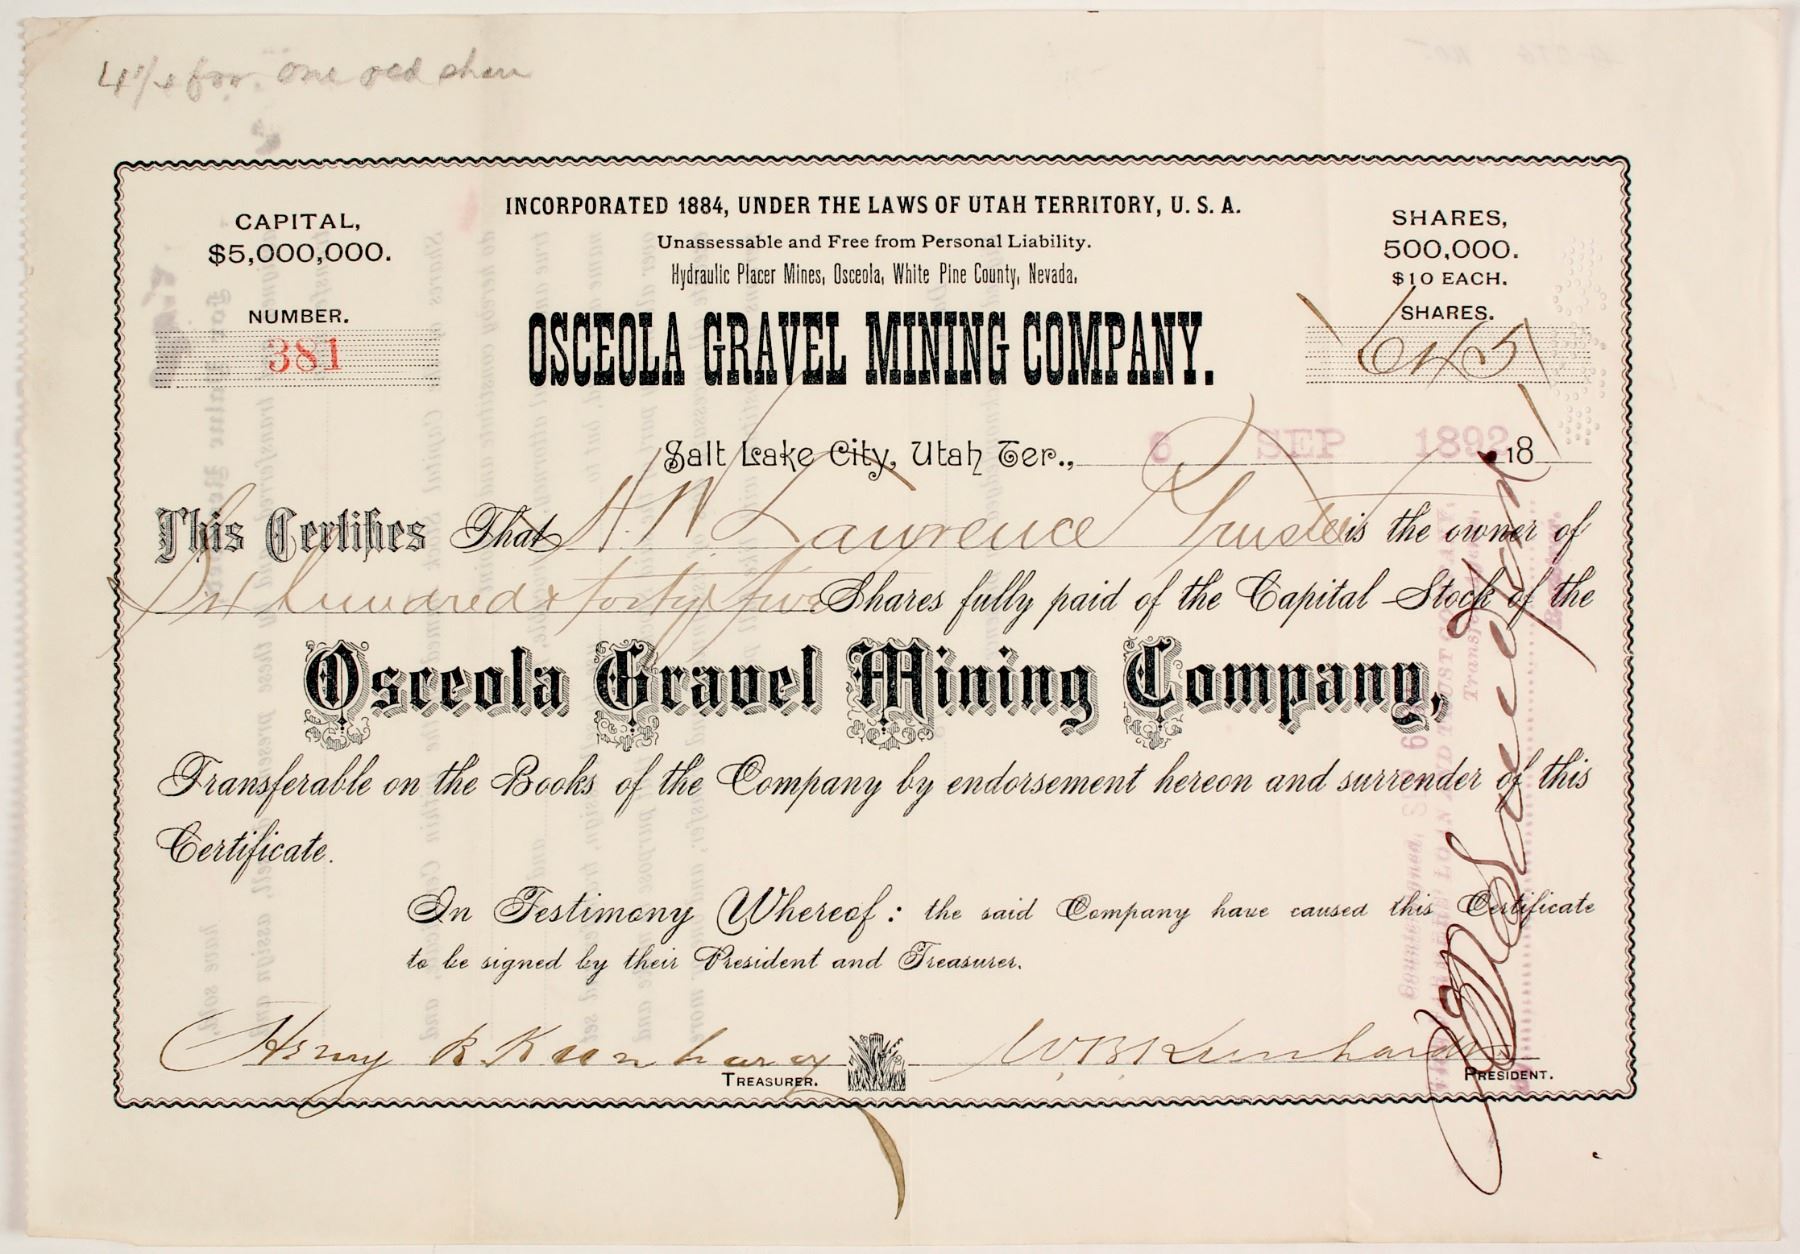 for one old share
CAPITAL,
$5,000,000.
INCORPORATED 1884, UNDER THE LAWS OF UTAH TERRITORY, U. S. A.
Unassessable and Free from Personal Liability.
Hydraulic Placer Mines, Osceola, White Pine County, Nevada.
SHARES,
500,000.
$10 EACH.
NUMBER.
381
OSCEOLA GRAVEL MINING COMPANY.
SHARES.
645
Salt Lake City, Utah Ter., 6 SEP 1892 18
This Certifies That H. W. Lawrence Trustee is the owner of
Six hundred & forty five Shares fully paid of the Capital Stock of the
Osceola Gravel Mining Company,
Transferable on the Books of the Company by endorsement hereon and surrender of this
Certificate.
In Testimony Whereof: the said Company have caused this Certificate
to be signed by their President and Treasurer.
Henry R Kunhardt
TREASURER.
W. B. Kunhardt
PRESIDENT.
Countersigned, SEP 6
LOAN AND TRUST COMPANY,
Transfer Agents,